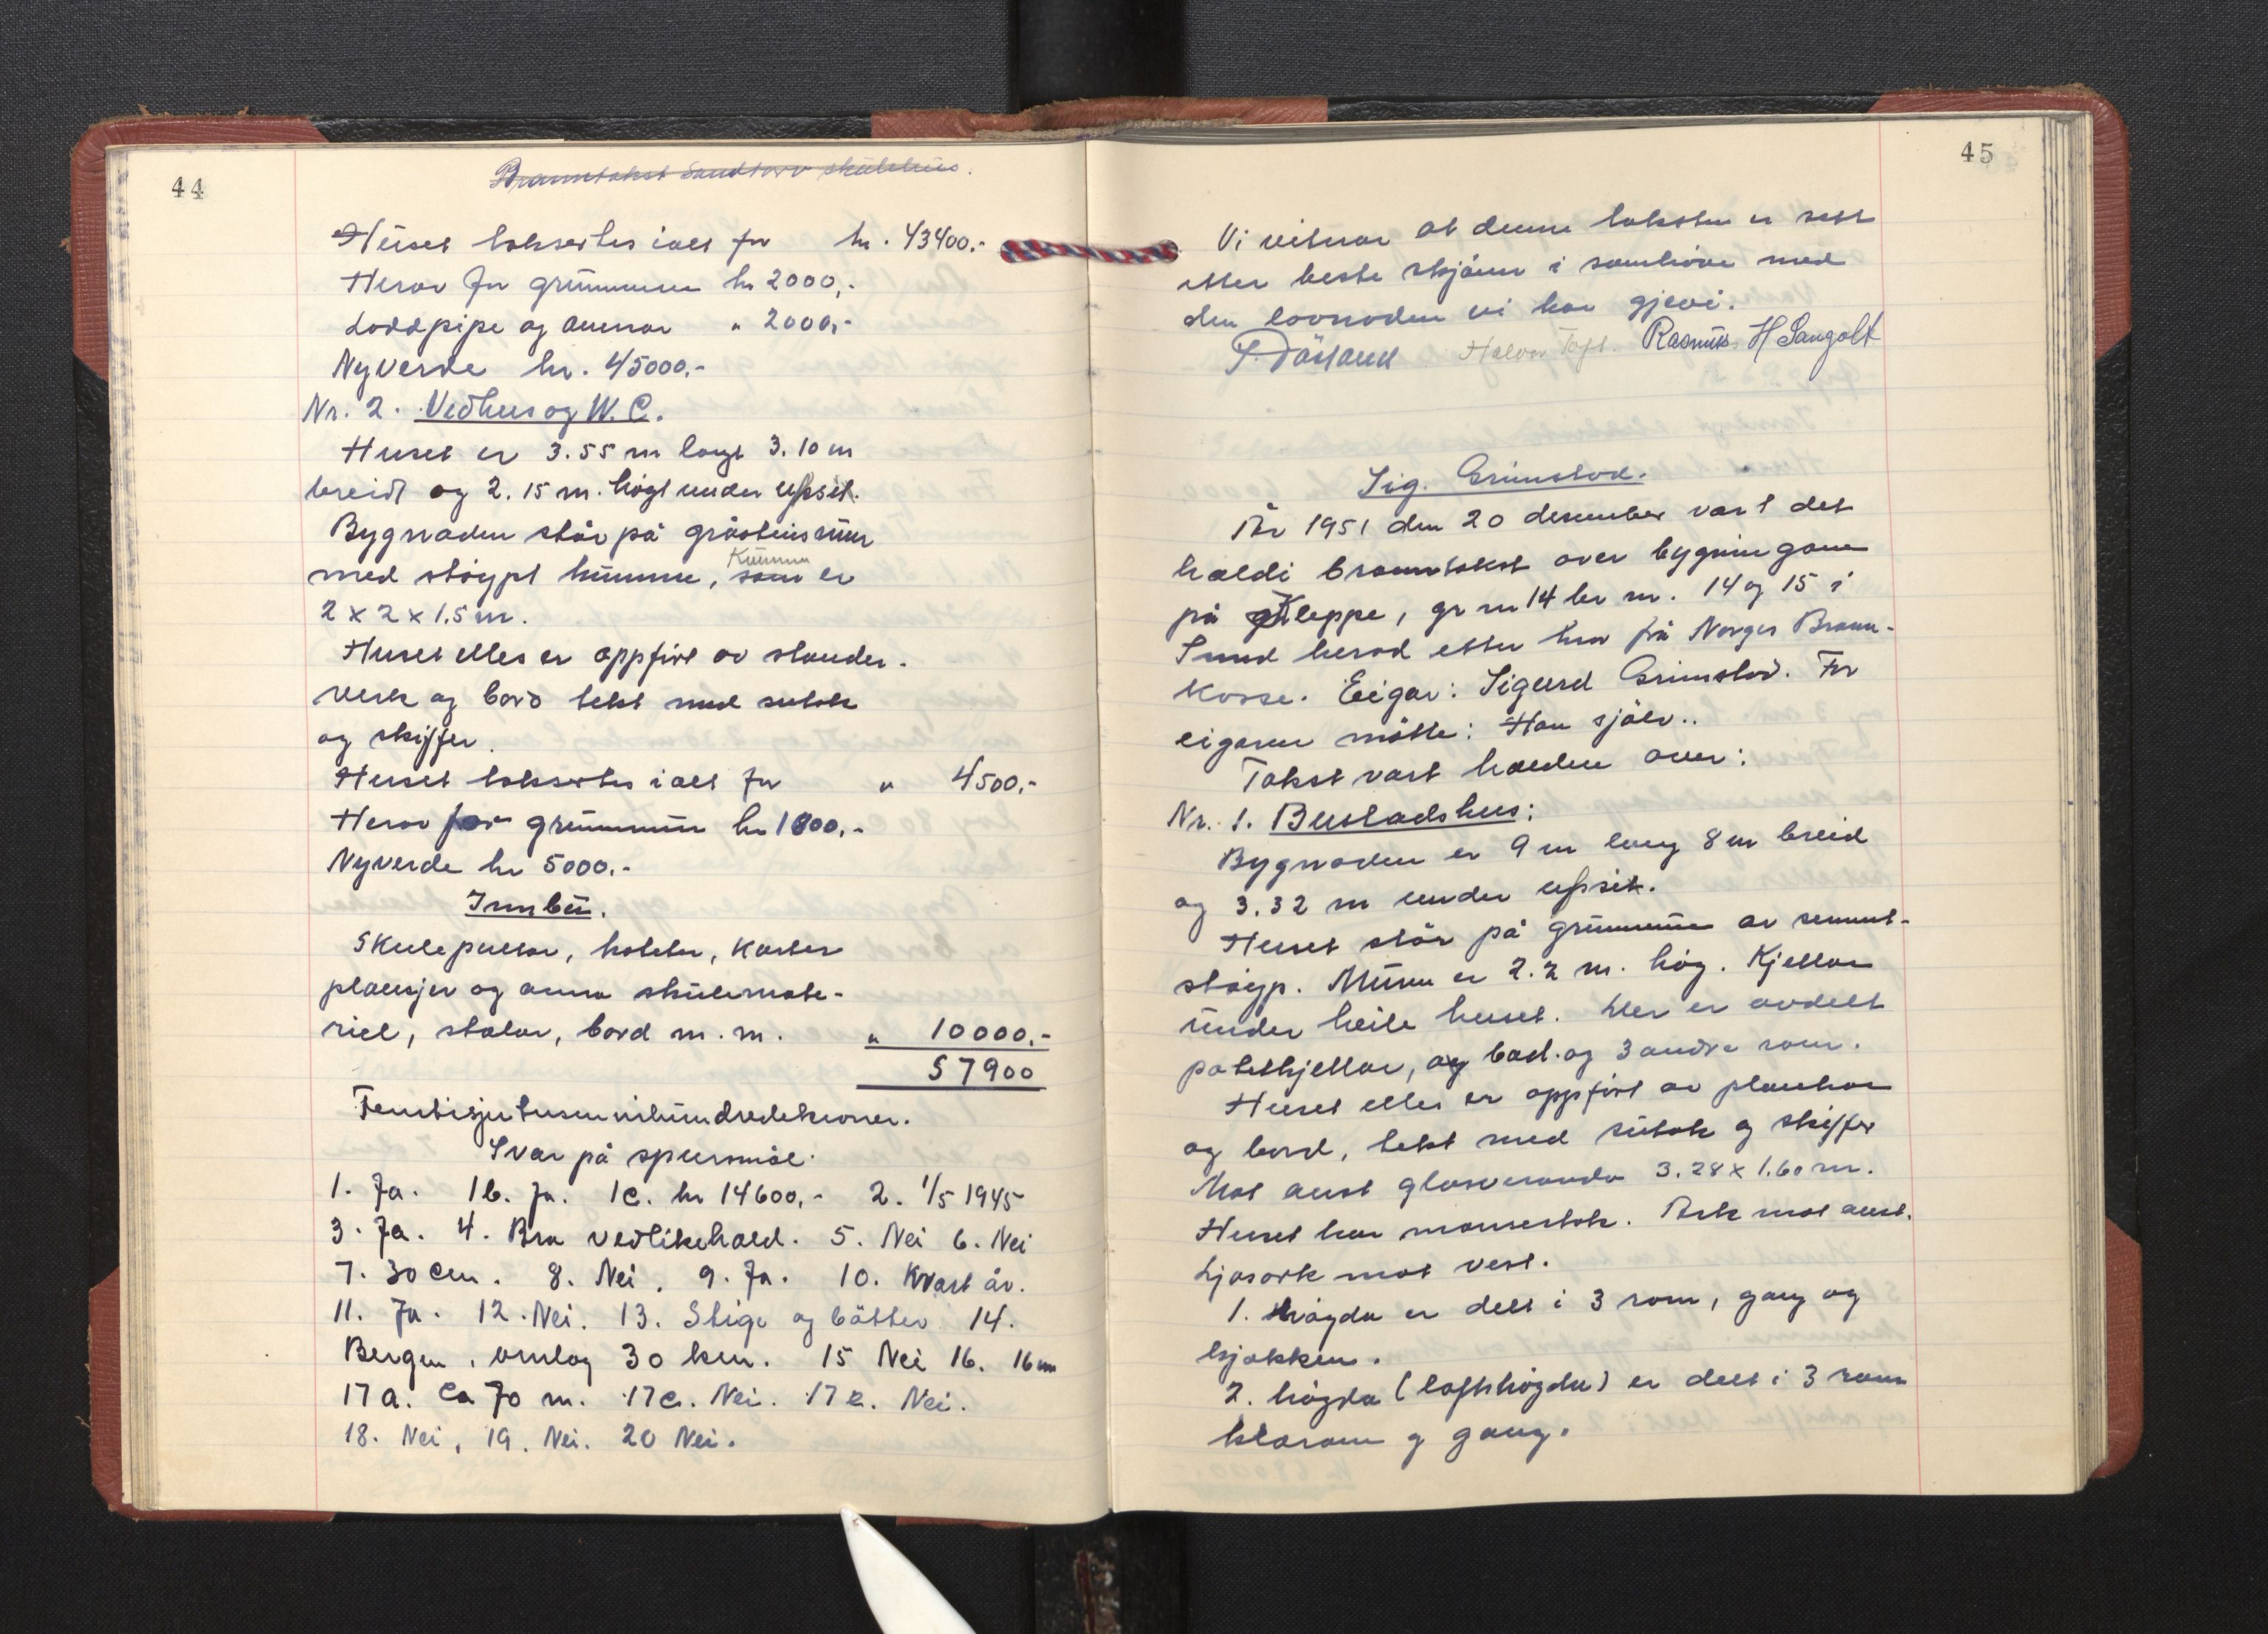 44
Branntakst Sandtorv skulehus.
Huset taksertes i alt for kr. 43400.-
Herav for grunnmur kr 2000,-
Loddpipe og annar " 2000,-
Nyverde kr. 45000.-
Nr. 2. Vedhus og W. C.
Huset er 3.55 m langt 3.10 m
breidt og 2.15 m. høgt under ufsit.
Bygnaden står på gråsteinsmur
med støypt kumme, som er
Kummen
2 x 2 x 1.5 m.
Huset elles er oppført av stender-
verk og bord tekt med sutak
og skiffer.
Huset taksertes i alt for " 4500.-
Herav for grunnmur kr 1000.-
Nyverde kr 5000.-
Innbu.
Skulepultar, kateter, karter
plansjer og anna skulemate-
riel, stolar, bord m. m. " 10000.-
57900
Femtisjutusennihundredekroner.
Svar på spursmål.
1. Ja. 1b. Ja. 1c. kr 14600,- 2. 1/5 1945
3. Ja. 4. Bra vedlikehald. 5. Nei 6. Nei
7. 30 cm. 8. Nei. 9. Ja. 10. Kvart år.
11. Ja. 12. Nei. 13. Stige og bøtter 14.
Bergen, omlag 30 km. 15 Nei 16. 16 m
17 a. Ca 70 m. 17c. Nei. 17 e. Nei.
18. Nei, 19. Nei. 20 Nei.
45
Vi vitnar at denne taksten er sett
etter beste skjønn i samhøve med
den lovnaden vi har gjevi.
Halvor Toft. Rasmus H Sangolt
Sig. Grimstad.
År 1951 den 20 desember vart det
haldi branntakst over bygningane
på Kleppe, gr nr 14 br nr. 14 og 15 i
Sund herad etter krav frå Norges Brann-
kasse. Eigar: Sigurd Grimstad. For
eigaren møtte: Han sjølv..
Takst vart halden over:
Nr. 1. Bustadshus:
Bygnaden er 9 m lang 8 m breid
og 3.32 m under ufsit.
Huset står på grunnmur av sement-
støyp. Muren er 2.2 m. høg. Kjellar
under heile huset. Her er avdelt
potetkjellar, og bad. og 3 andre rom.
Huset elles er oppført av plankar
og bord, tekt med sutak og skiffer
Mot aust glasveranda 3.28 x 1.60 m.
Huset har mansertak. Ark mot aust.
Ljosark mot vest.
1. høgda er delt i 3 rom, gang og
kjøkken.
2. høgda (loftshøgda) er delt i 3 rom
klærom og gang.